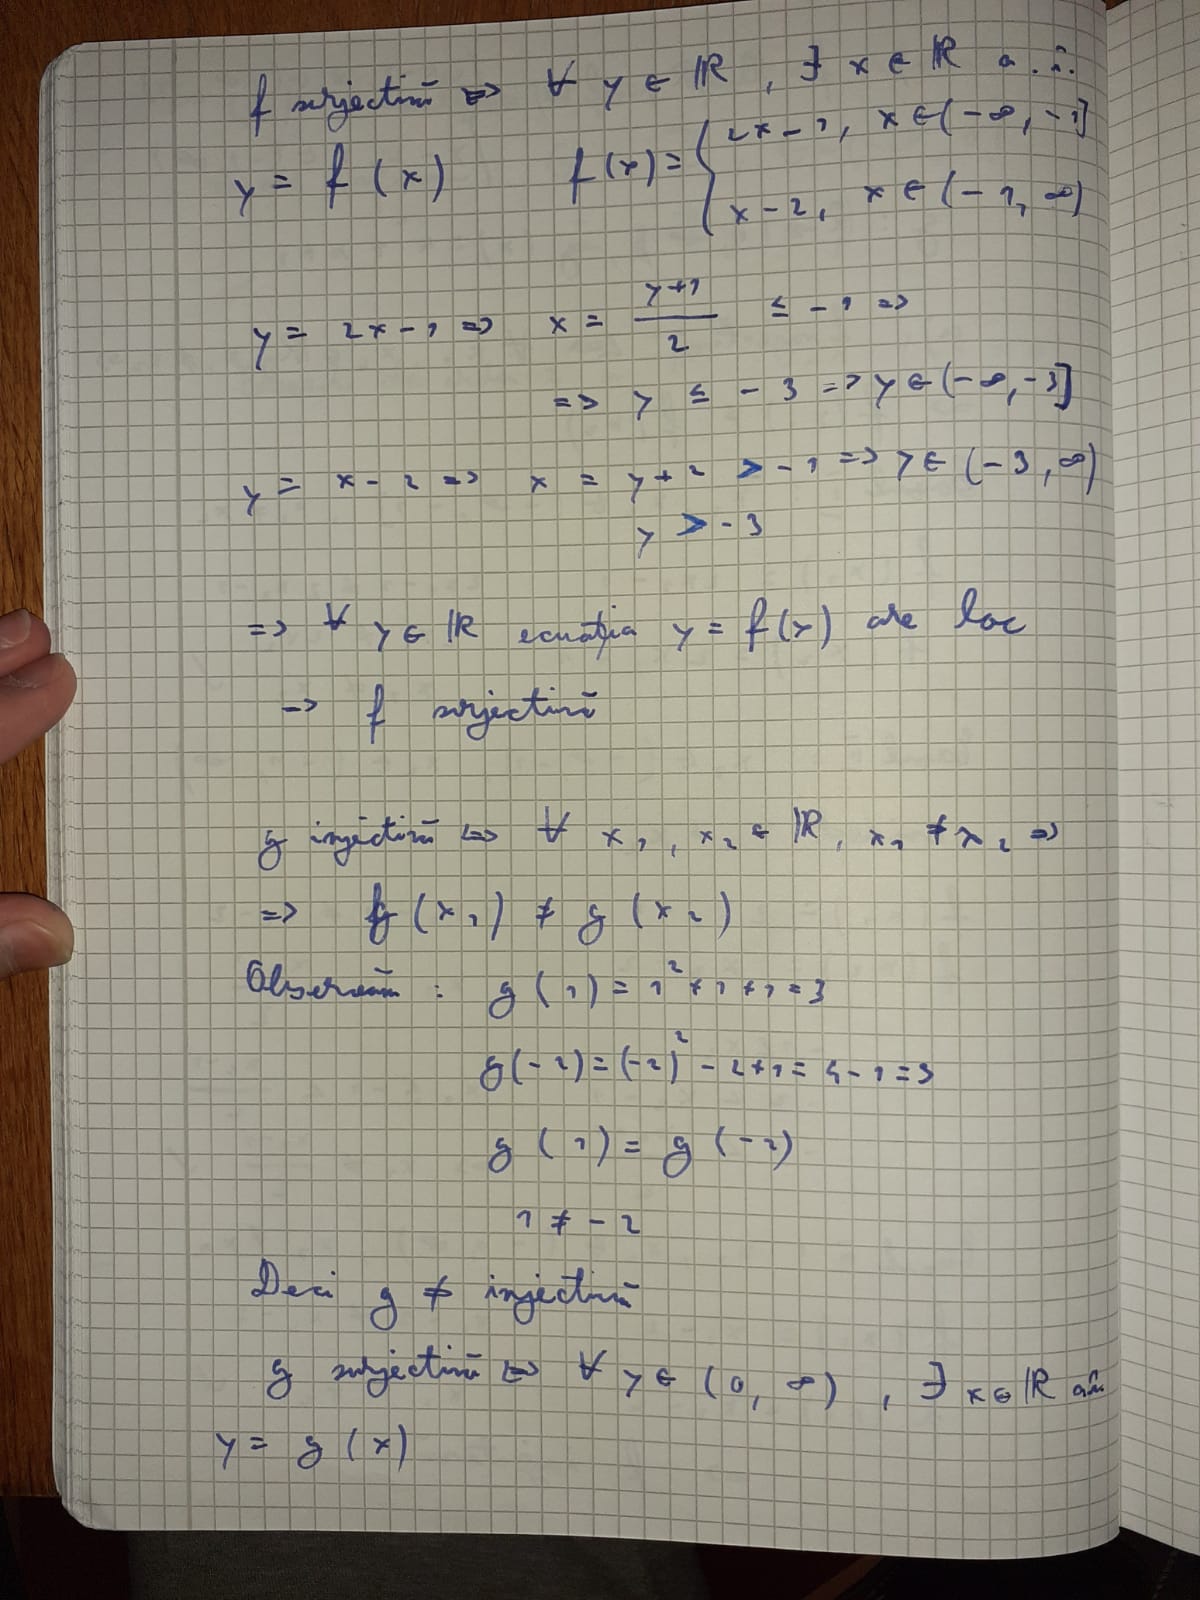 f surjectivă <=> ∀ y ∈ ℝ , ∃ x ∈ ℝ a.î.
y = f(x) f(x) = { 2x-1, x ∈ (-∞, -1]
x-2, x ∈ (-1, ∞)
y = 2x-1 => x = (y+1)/2 ≤ -1 =>
=> y ≤ -3 => y ∈ (-∞, -3]
y = x-2 => x = y+2 > -1 => y ∈ (-3, ∞)
y > -3
=> ∀ y ∈ ℝ ecuația y = f(x) are loc
-> f surjectivă
g injectivă <=> ∀ x₁, x₂ ∈ ℝ, x₁ ≠ x₂ =>
=> g(x₁) ≠ g(x₂)
Observăm : g(1) = 1² + 1 + 1 = 3
g(-2) = (-2)² - 2+1 = 4-1 = 3
g(1) = g(-2)
1 ≠ -2
Deci g ≠ injectivă
g surjectivă <=> ∀ y ∈ (0, ∞) , ∃ x ∈ ℝ aî.
y = g(x)